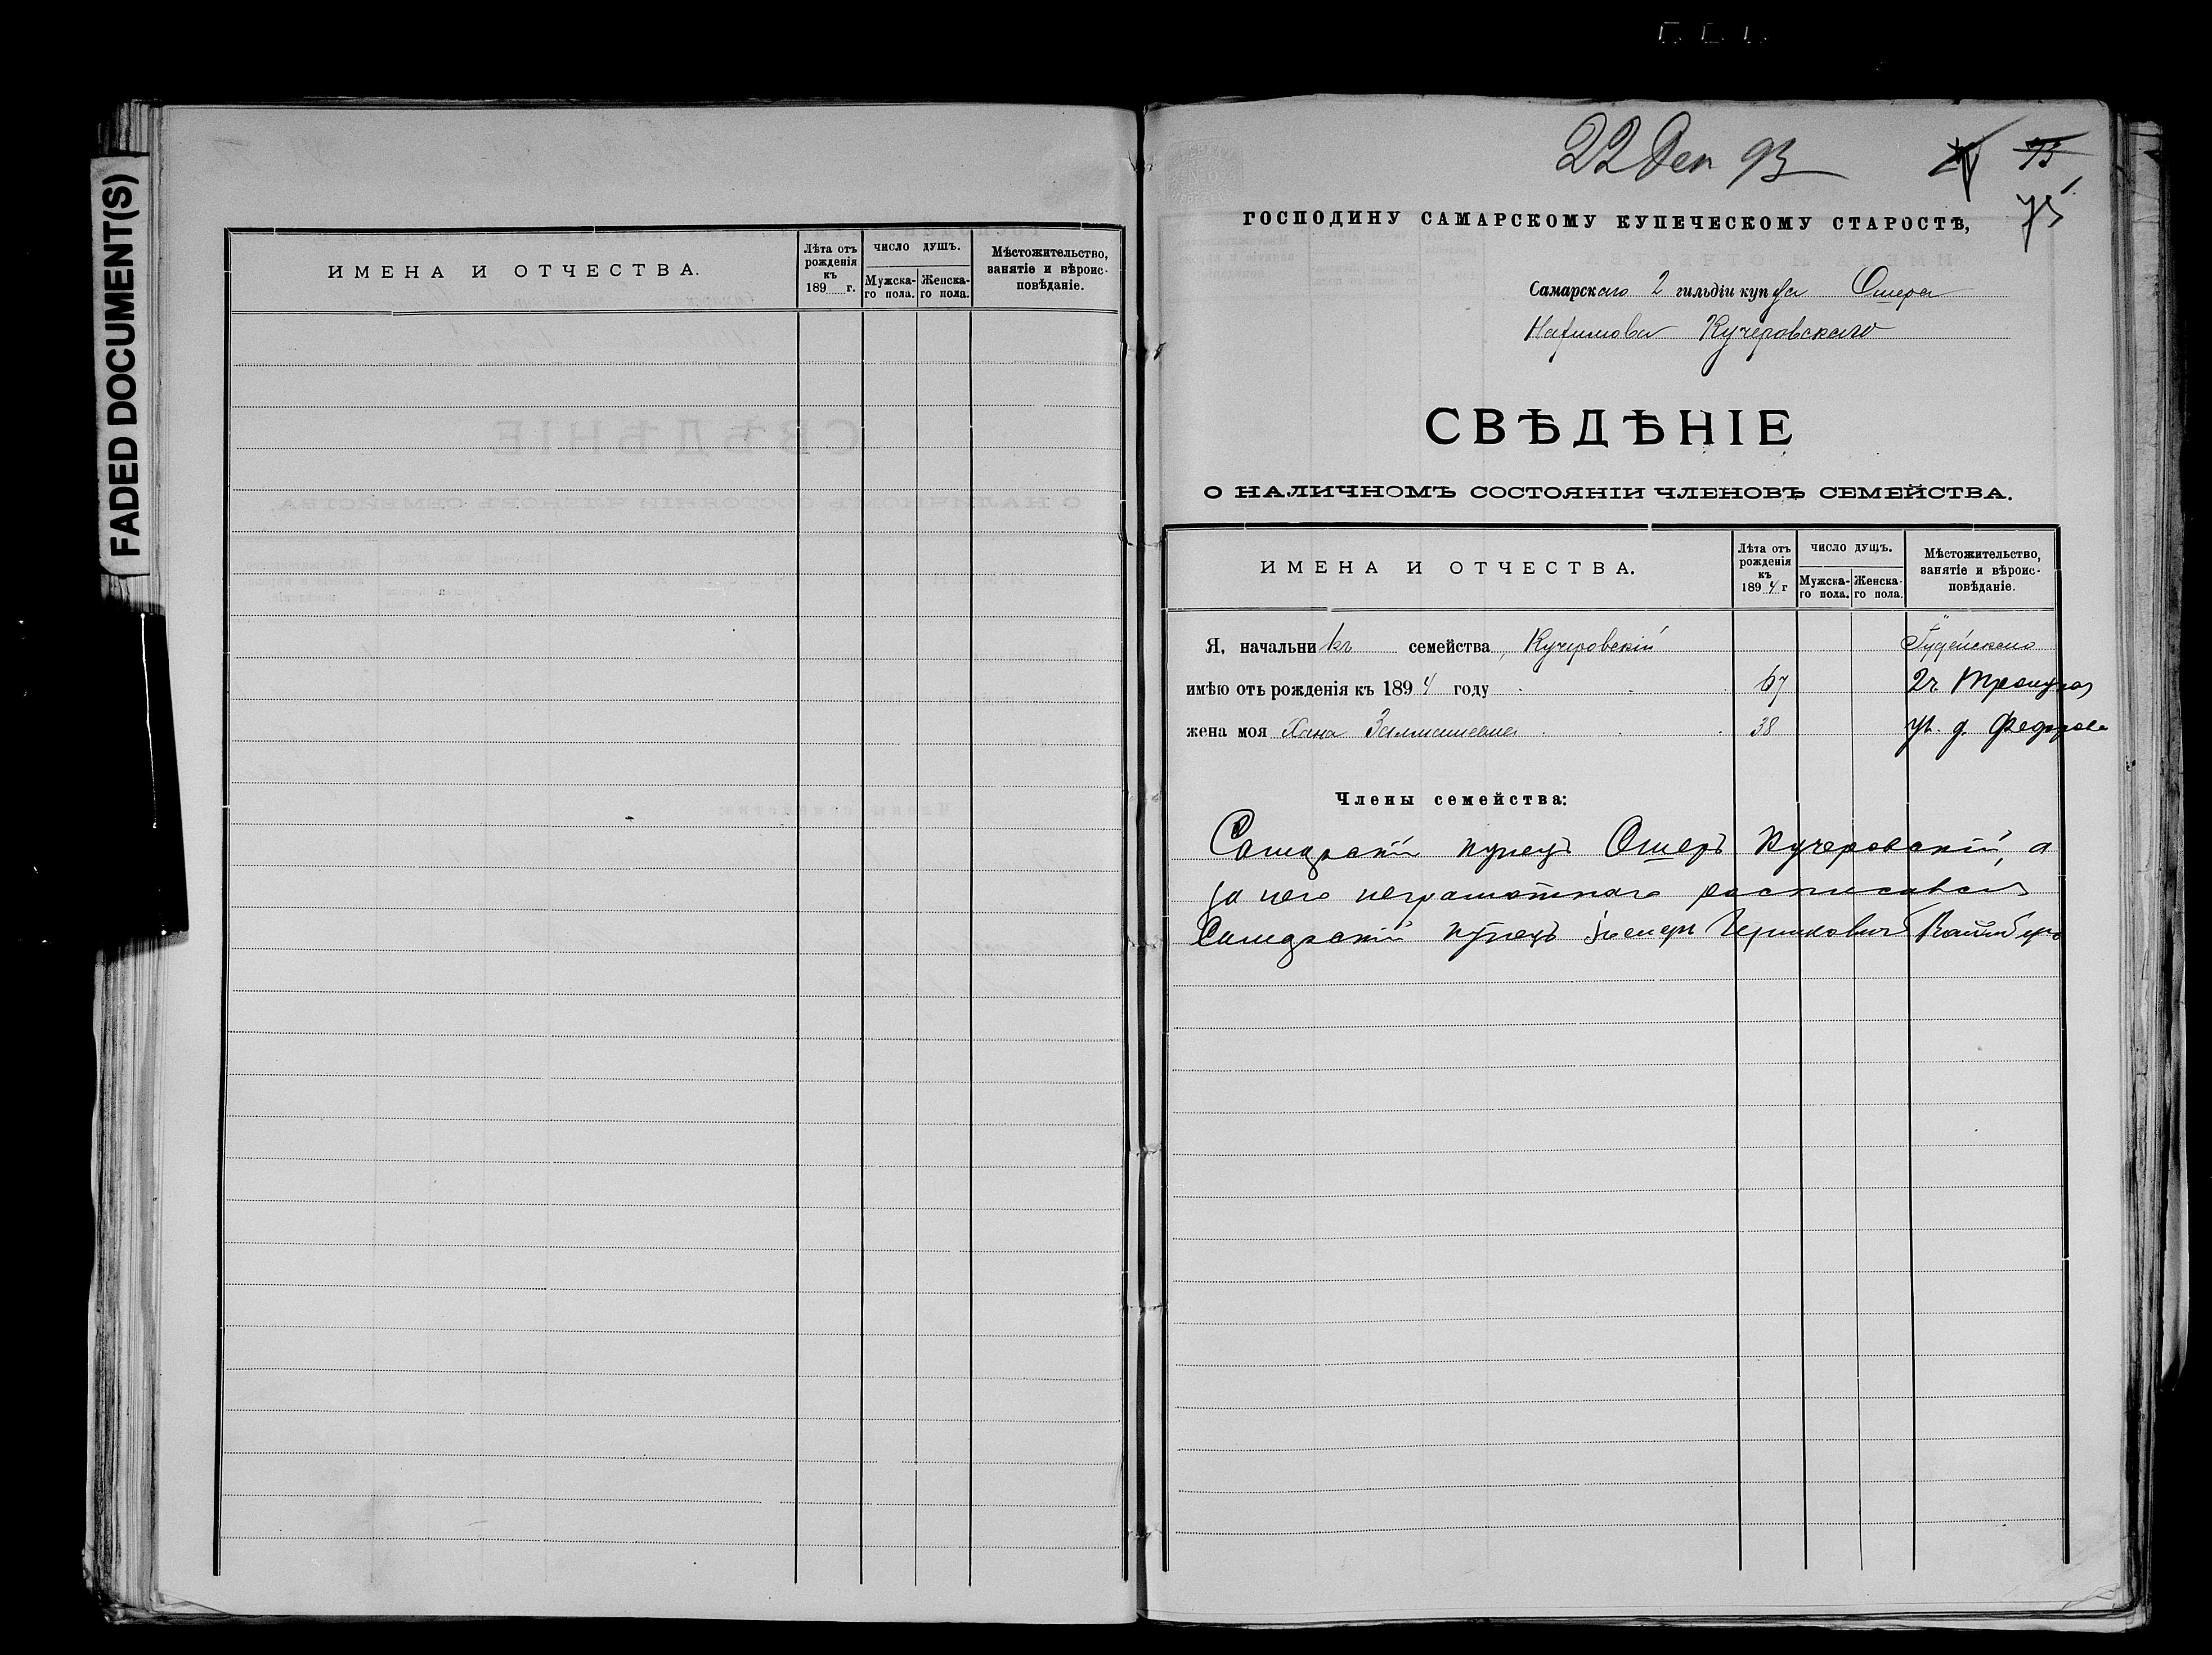 FADED DOCUMENT(S)
ИМЕНА И ОТЧЕСТВА.
Лѣта отъ рожденія къ 189 г.
ЧИСЛО ДУШЪ.
Мужска-го пола.
Женска-го пола.
Мѣстожительство, занятіе и вѣроис-повѣданіе.
22 Дек 93
75
75
ГОСПОДИНУ САМАРСКОМУ КУПЕЧЕСКОМУ СТАРОСТѢ,
Самарскаго 2 гильдіи купца Ошера
Нахимова Кучеровскаго
СВѢДѢНІЕ
О НАЛИЧНОМЪ СОСТОЯНІИ ЧЛЕНОВЪ СЕМЕЙСТВА.
ИМЕНА И ОТЧЕСТВА.
Лѣта отъ рожденія къ 1894 г
ЧИСЛО ДУШЪ.
Мужска-го пола.
Женска-го пола.
Мѣстожительство, занятіе и вѣроис-повѣданіе.
Я, начальникъ семейства, Кучеровскій Іудейскаго
имѣю отъ рожденія къ 1894 году 67 2ч. Троицкая
жена моя Хана Залмановна 38 ул. д. Федорова
Члены семейства:
Самарскій купецъ Ошеръ Кучеровскій, а
за него неграмотнаго росписовался
Самарскій купецъ Гершковичъ Вайнберг